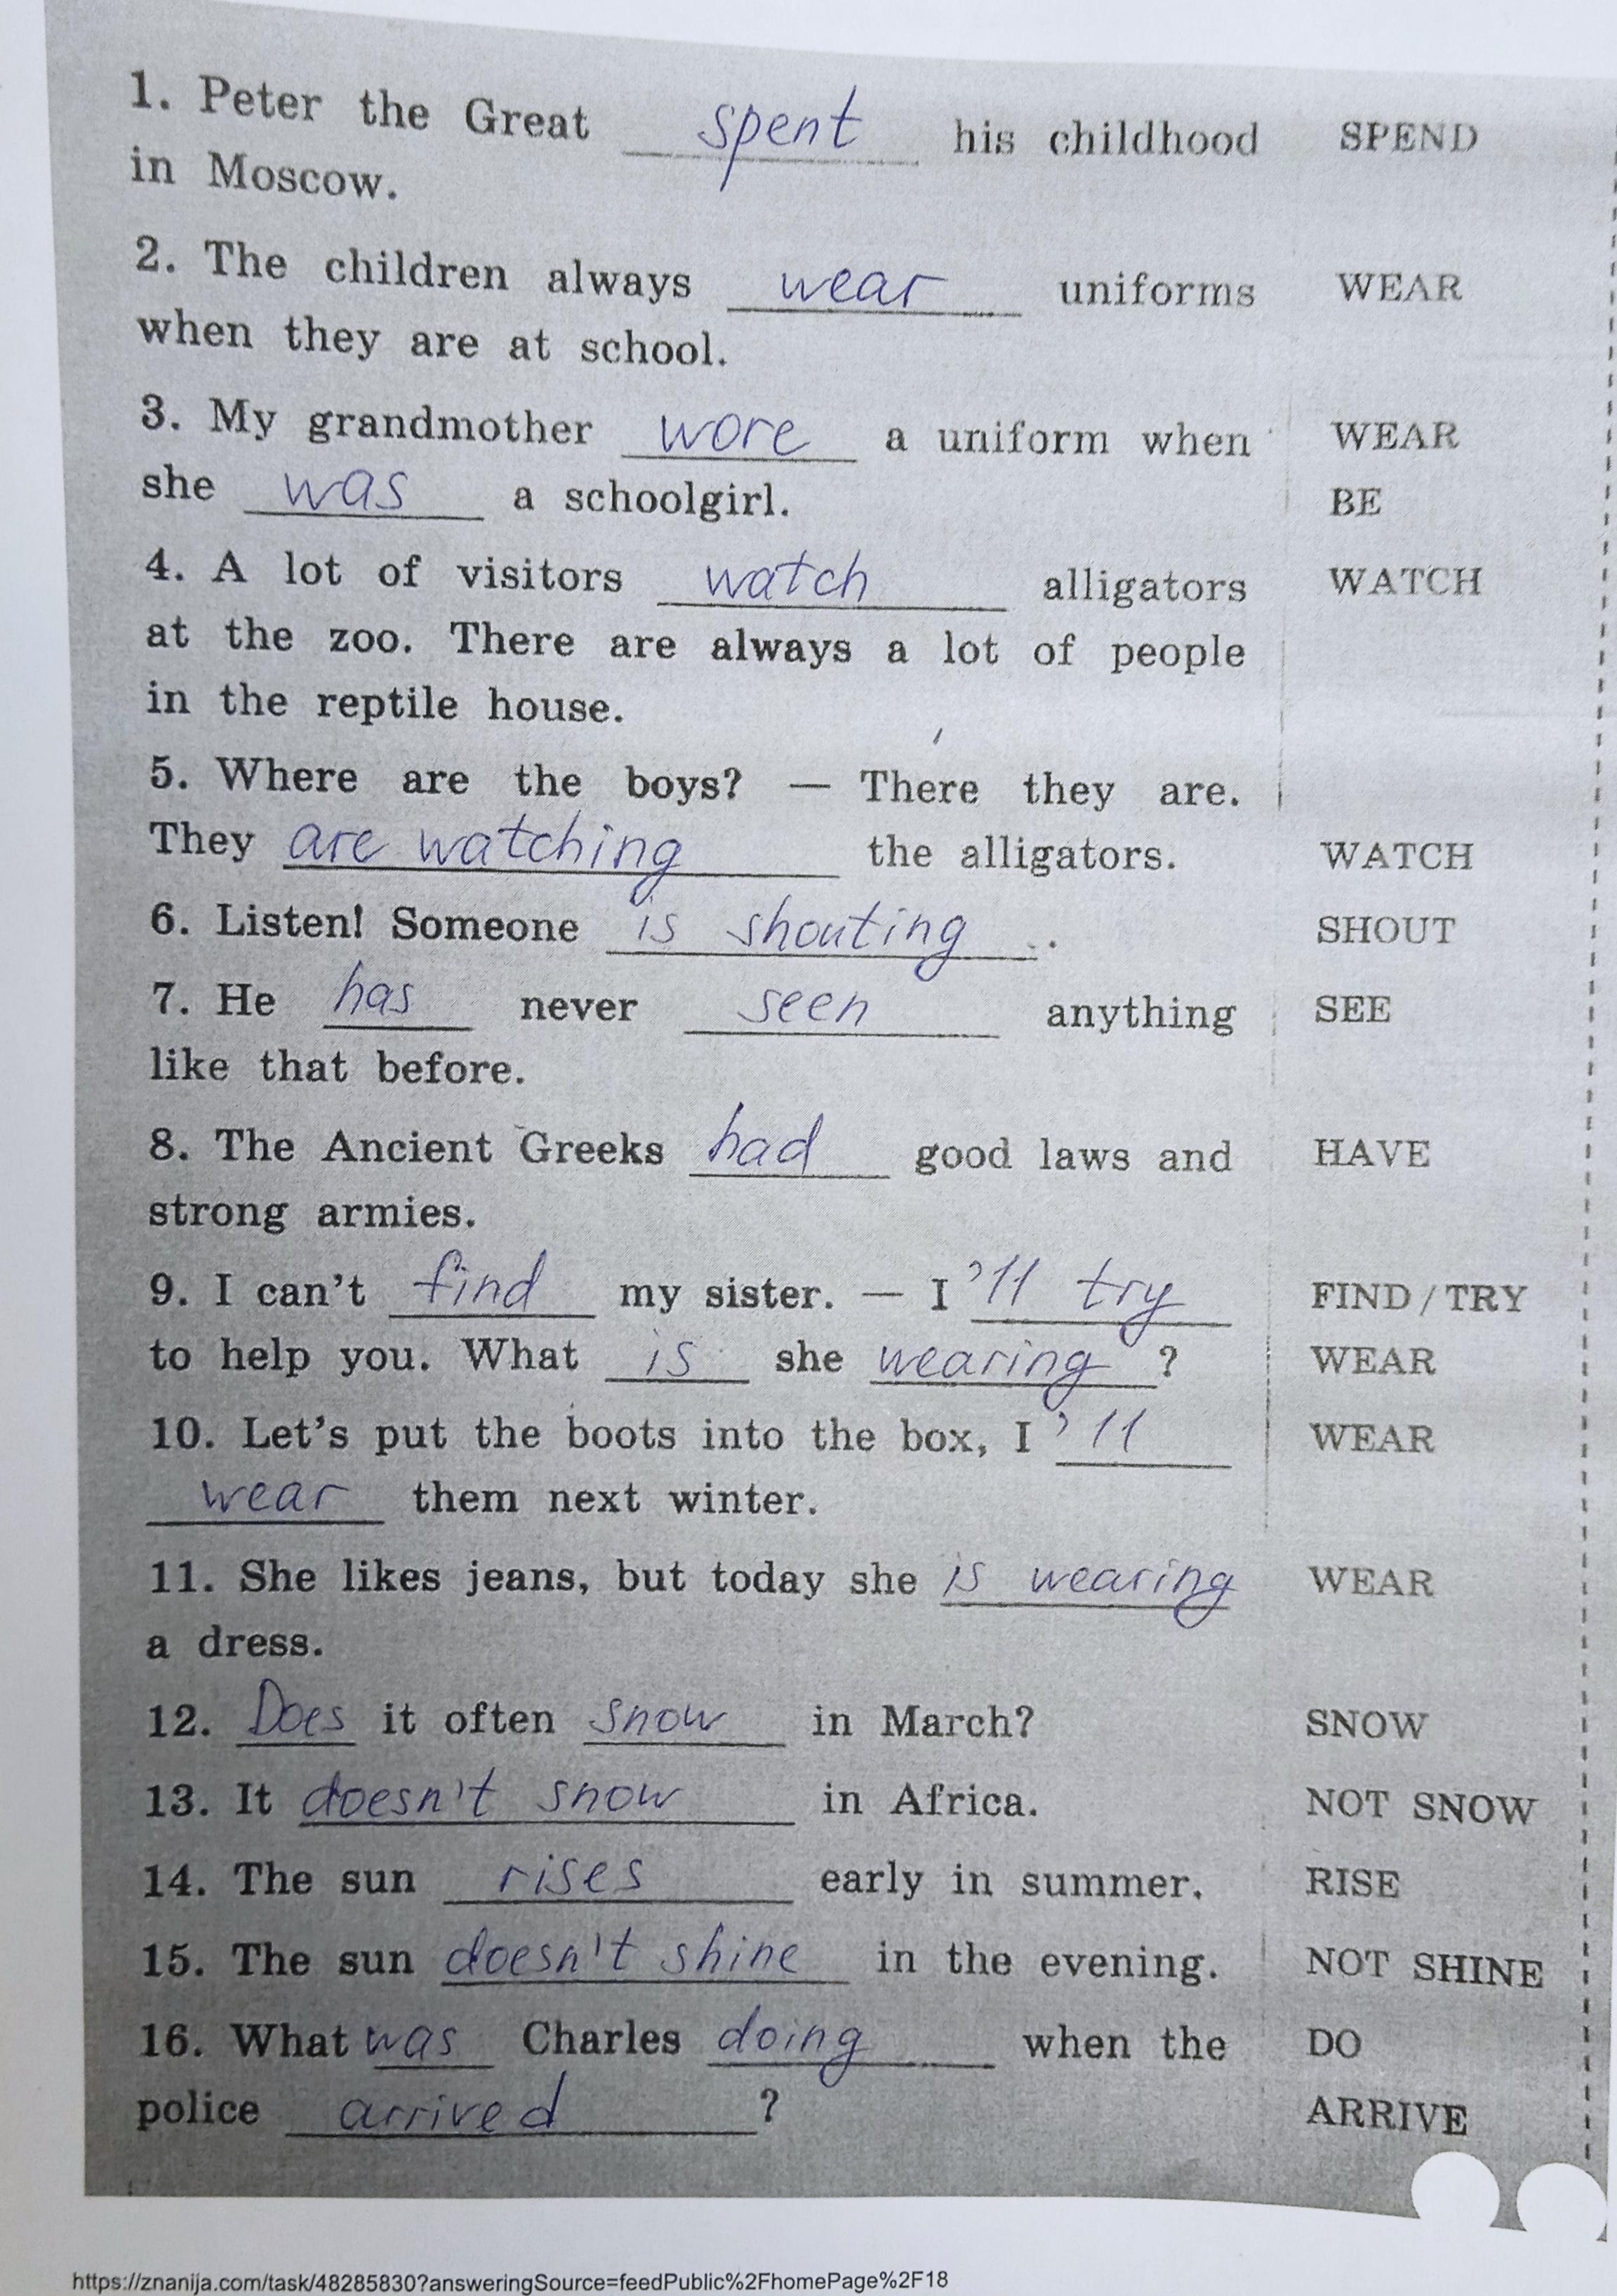 1. Peter the Great spent his childhood SPEND
in Moscow.
2. The children always wear uniforms WEAR
when they are at school.
3. My grandmother wore a uniform when WEAR
she was a schoolgirl. BE
4. A lot of visitors watch alligators WATCH
at the zoo. There are always a lot of people
in the reptile house.
5. Where are the boys? — There they are.
They are watching the alligators. WATCH
6. Listen! Someone is shouting. SHOUT
7. He has never seen anything SEE
like that before.
8. The Ancient Greeks had good laws and HAVE
strong armies.
9. I can't find my sister. — I 'll try FIND / TRY
to help you. What is she wearing? WEAR
10. Let's put the boots into the box, I 'll WEAR
wear them next winter.
11. She likes jeans, but today she is wearing WEAR
a dress.
12. Does it often snow in March? SNOW
13. It doesn't snow in Africa. NOT SNOW
14. The sun rises early in summer. RISE
15. The sun doesn't shine in the evening. NOT SHINE
16. What was Charles doing when the DO
police arrived? ARRIVE
https://znanija.com/task/48285830?answeringSource=feedPublic%2FhomePage%2F18